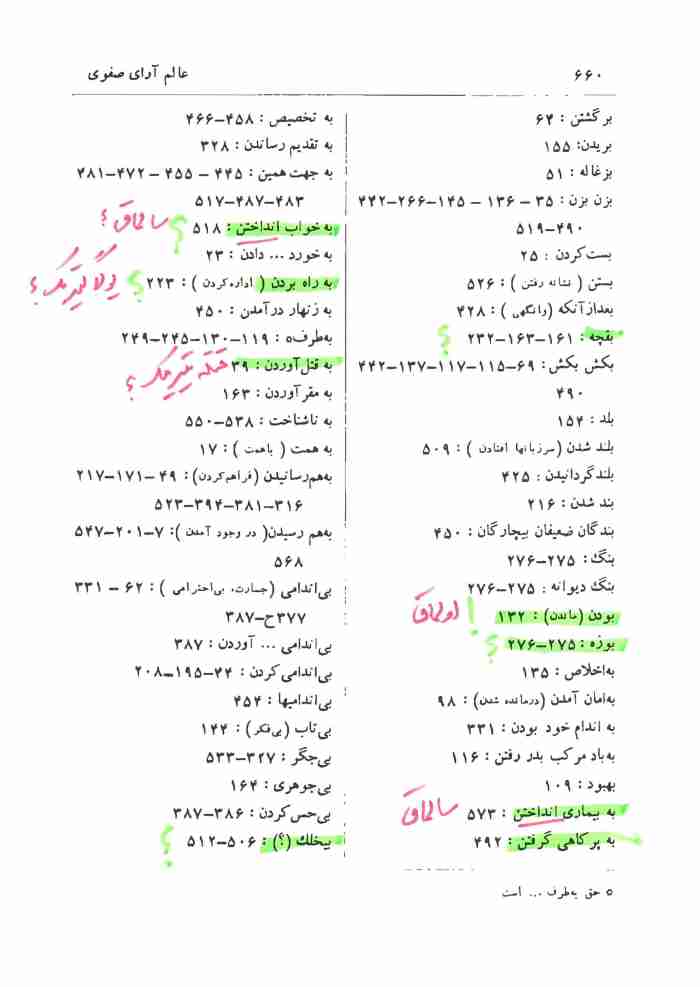 ۶۶۰
عالم آرای صفوی
برگشتن : ۶۴
بریدن: ۱۵۵
بزغاله : ۵۱
بزن بزن : ۳۵ – ۱۳۶ – ۱۴۵–۲۶۶–۴۴۲
۴۹۰–۵۱۹
بست کردن : ۲۵
بستن ( نشانه رفتن ) : ۵۲۶
بعدازآنکه (وانگهی ) : ۴۲۸
بقچه : ۱۶۱–۱۶۳–۲۳۲ ؟
بکش بکش: ۶۹–۱۱۵–۱۱۷–۱۳۷–۴۴۲
۴۹۰
بلد : ۱۵۴
بلند شدن (سرزبانها افتادن ) : ۵۰۹
بلندگردانیدن : ۴۲۵
بند شدن : ۲۱۶
بندگان ضعیفان بیچارگان : ۴۵۰
بنگ: ۲۷۵–۲۷۶
بنگ دیوانه : ۲۷۵–۲۷۶
بودن (ماندن) : ۱۳۲ ! اولماق
بوزه : ۲۷۵–۲۷۶ ؟
به‌اخلاص : ۱۳۵
به‌امان آمدن (درمانده شدن) : ۹۸
به اندام خود بودن : ۳۳۱
به‌باد مرکب بدر رفتن : ۱۱۶
بهبود : ۱۰۹
به بیماری انداختن : ۵۷۳ سالماق
به پرکاهی گرفتن : ۴۹۲
به تخصیص : ۴۵۸–۴۶۶
به تقدیم رساندن : ۳۲۸
به جهت همین : ۴۴۵ – ۴۵۵ – ۴۷۲–۴۸۱
۴۸۳–۴۸۷–۵۱۷
به خواب انداختن : ۵۱۸ ؟ سالماق ؟
به خورد ... دادن : ۲۳
به راه بردن ( اداره کردن ) : ۲۲۳ ؟
به زنهار درآمدن : ۴۵۰
به‌طرف۵ : ۱۱۹–۱۳۰–۲۴۵–۲۴۹
به قتل آوردن : ۳۹
به مقر آوردن : ۱۶۳
به ناشناخت : ۵۳۸–۵۵۰
به همت ( باهمت ) : ۱۷
به‌هم‌رسانیدن (فراهم‌کردن) : ۴۹–۱۷۱–۲۱۷
۳۱۶–۳۸۱–۳۹۴–۵۲۳
به‌هم رسیدن( در وجود آمدن ): ۷–۲۰۱–۵۴۷
۵۶۸
بی‌اندامی (جسارت، بی‌احترامی ) : ۶۲ – ۳۳۱
۳۷۷ح–۳۸۷
بی‌اندامی ... آوردن : ۳۸۷
بی‌اندامی کردن : ۴۴–۱۹۵–۲۰۸
بی‌اندامیها : ۴۵۴
بی‌تاب (بی‌فکر) : ۱۴۴
بی‌جگر : ۳۲۷–۵۳۳
بی‌جوهری : ۱۶۴
بی‌حس کردن : ۳۸۶–۳۸۷
بیخلك (؟) : ۵۰۶–۵۱۲ ؟
۵ حق به‌طرف ... است